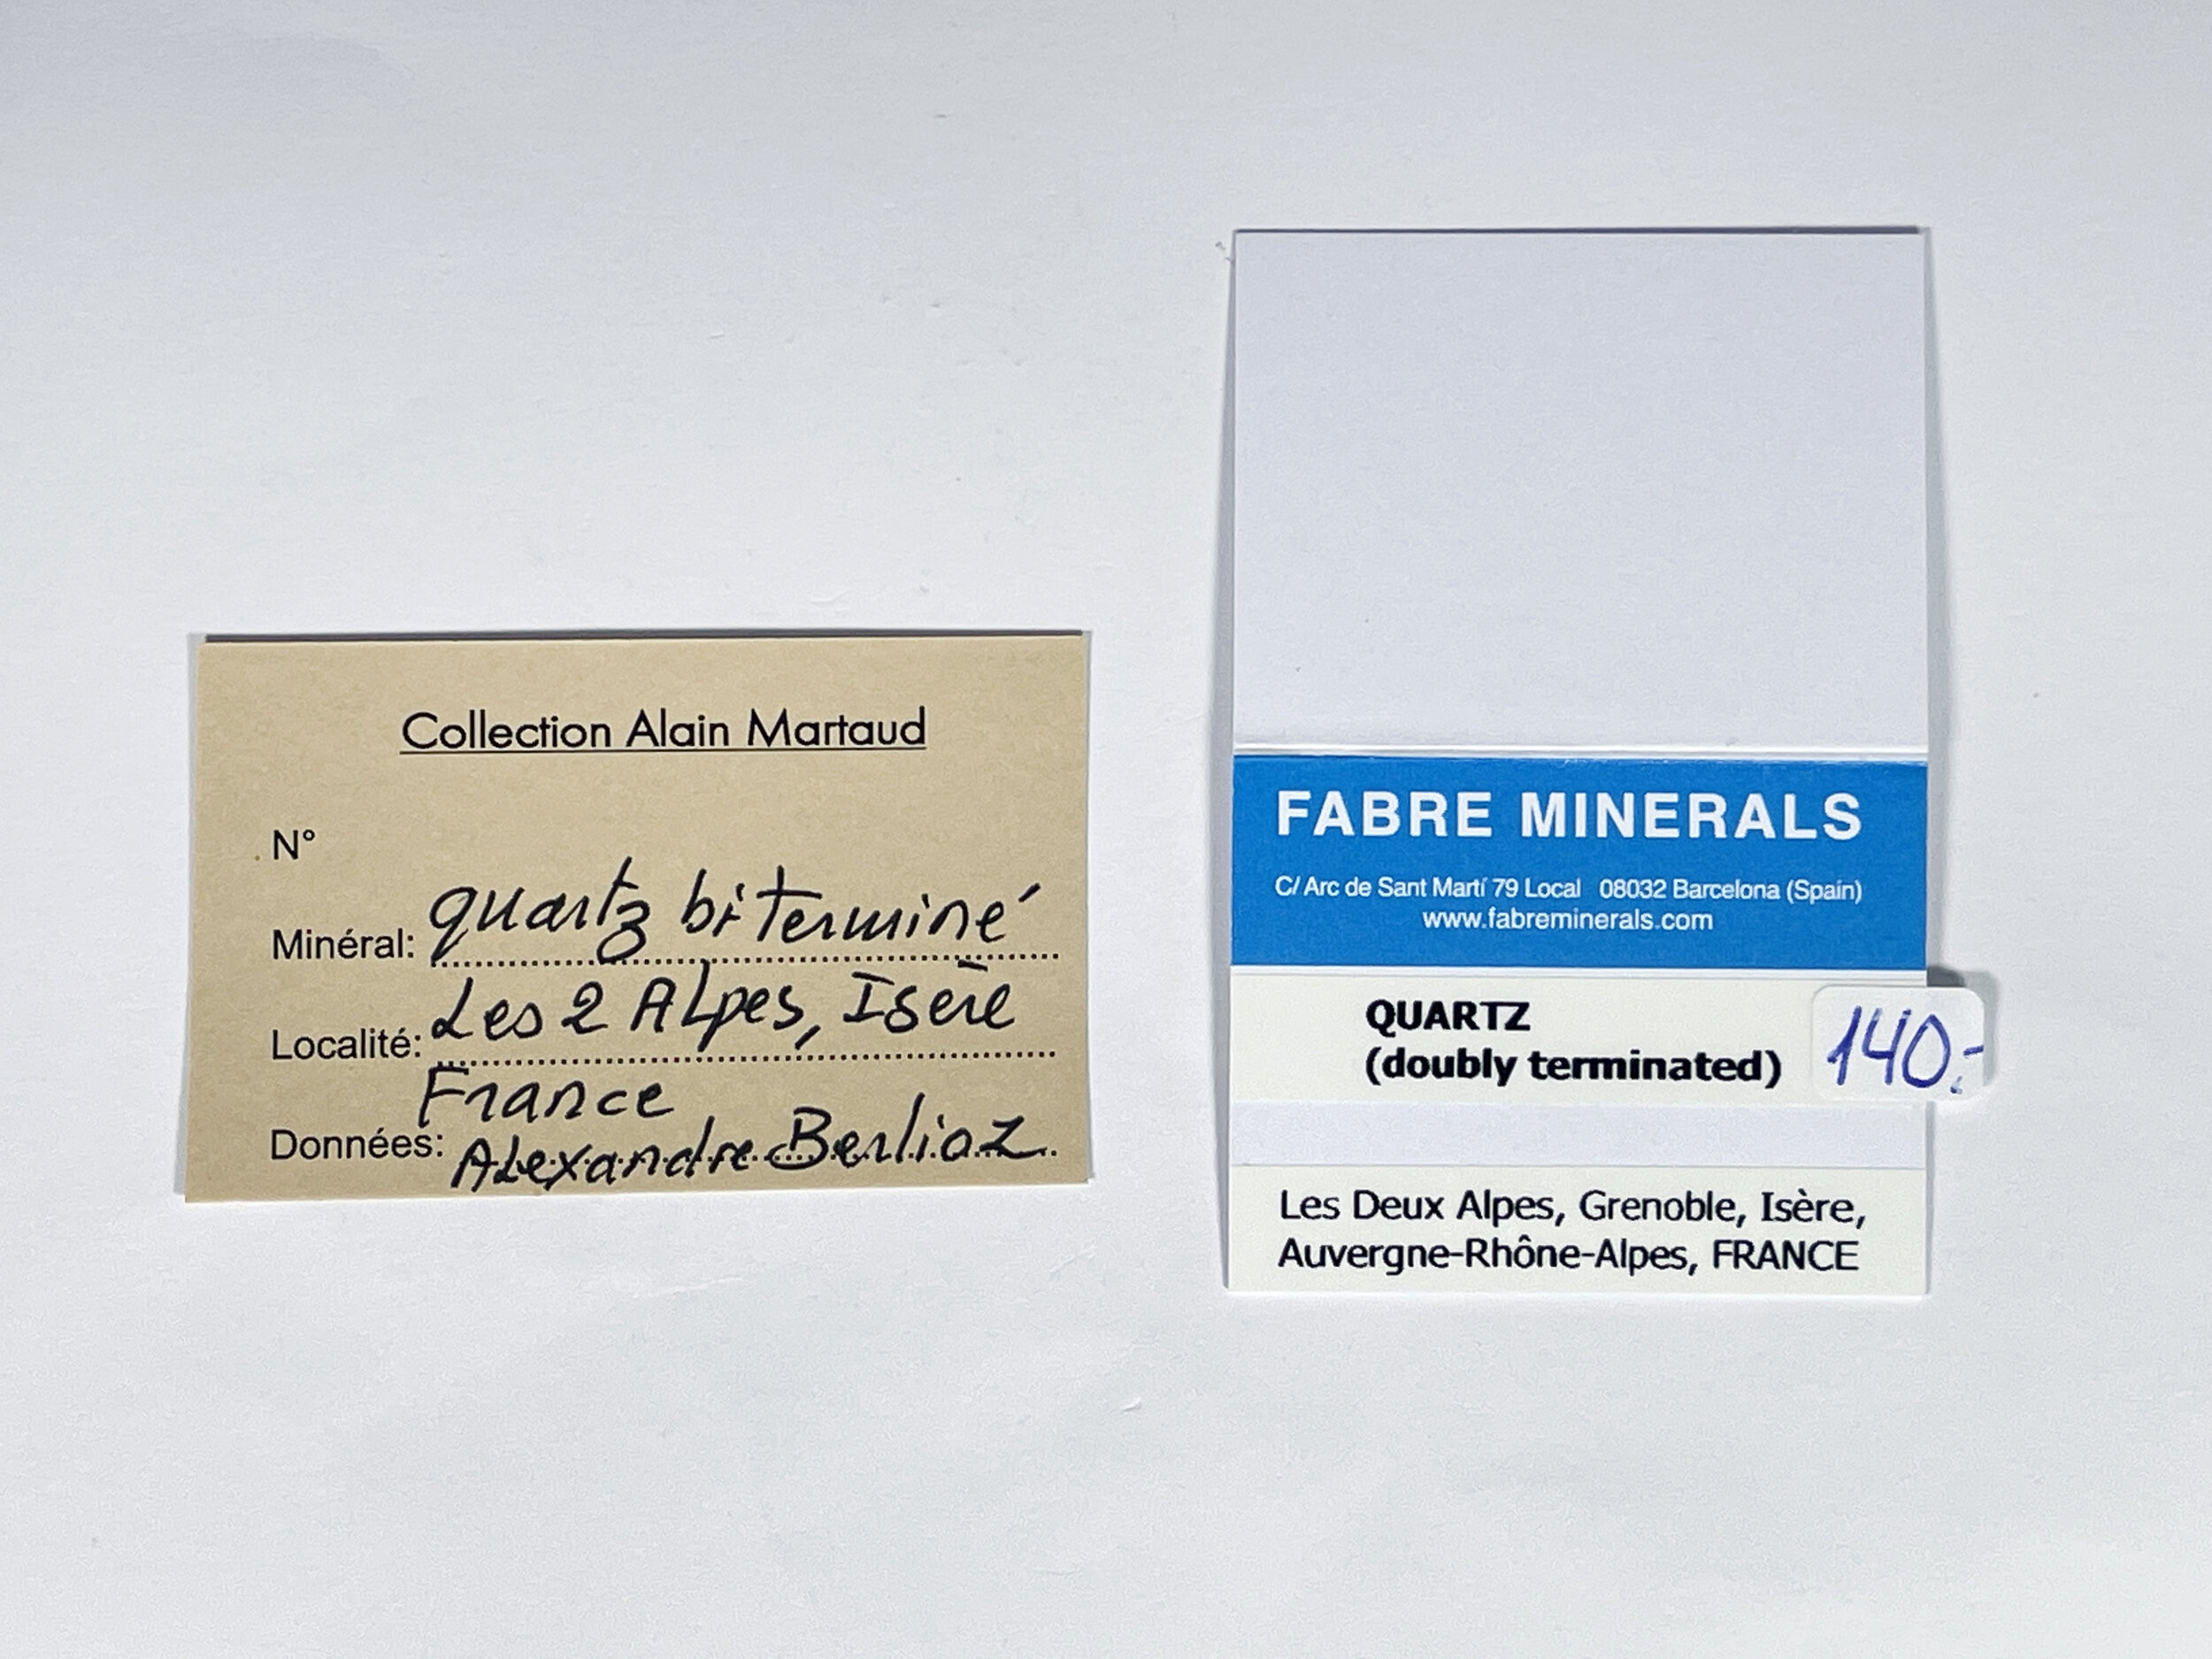 Collection Alain Martaud
N°
Minéral: quartz biterminé
Localité: Les 2 Alpes, Isère
France
Données: Alexandre Berlioz
FABRE MINERALS
C/ Arc de Sant Martí 79 Local 08032 Barcelona (Spain)
www.fabreminerals.com
QUARTZ
(doubly terminated)
140.-
Les Deux Alpes, Grenoble, Isère,
Auvergne-Rhône-Alpes, FRANCE